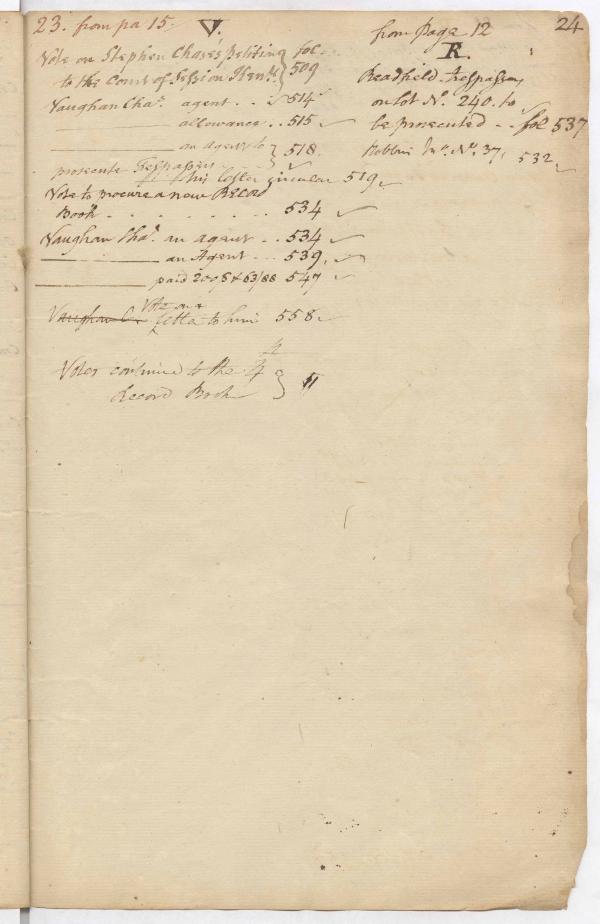 23. from pa 15.
V.
Vote on Stephen Chase's petiting } fol
to the Court of Session Henr. } 509
Vaughan Cha.s agent . . 514
——— allowance . . 515
——— an agent to } 518
prosecute Trespassers
his letter circular 519
Vote to procure a new Record
Book . . . . . . . 534
Vaughan Cha.s an agent . . 534
——— an Agent . . . 539
——— paid 200 & 63/88 547
Vote on a
letter to him 558
Votes continued to the 4
Record Book } 11
24
from page 12
R.
Readfield Trespassers
on Lot N.o 240. to
be prosecuted . . fol 537
Robbins N.o 37, 532